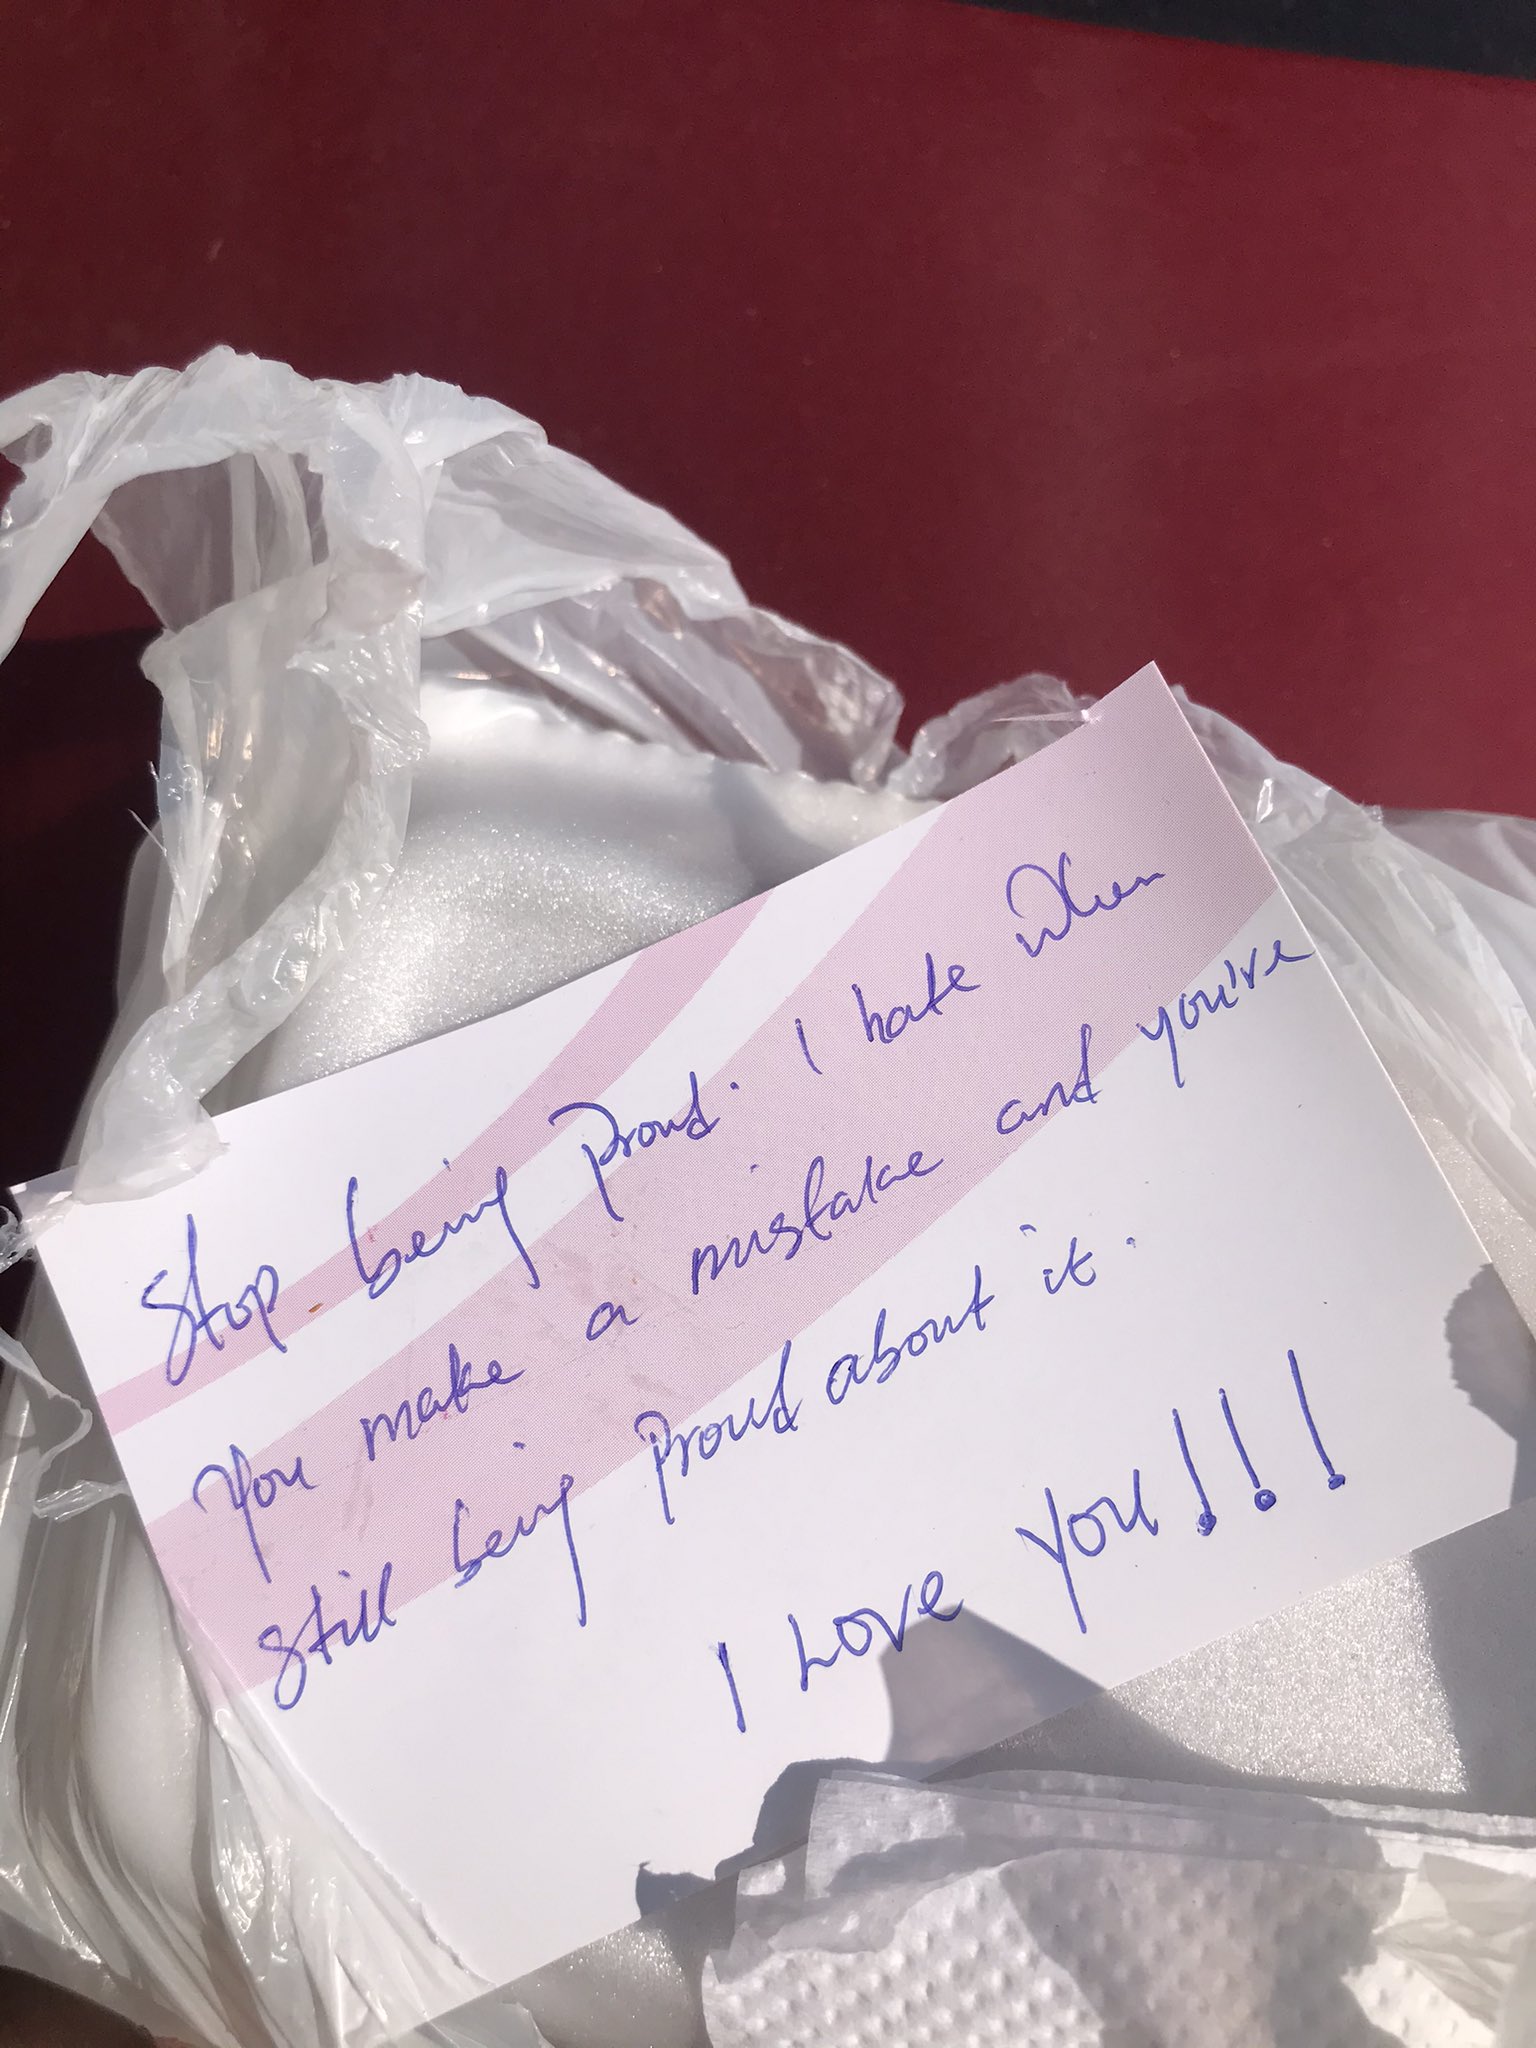 Stop being proud. I hate when
You make a mistake and you're
still being proud about it.
I Love You!!!